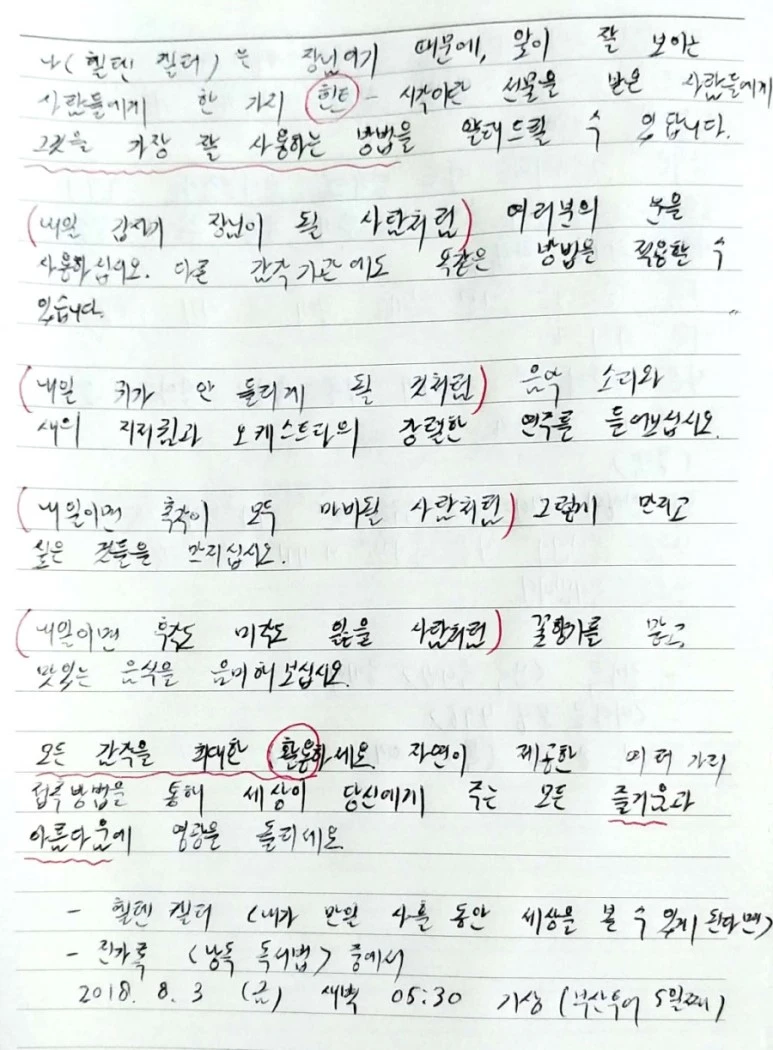 나(헬렌 켈러)는 장님이기 때문에, 앞이 잘 보이는
사람들에게 한 가지 힌트 - 시각이란 선물을 받은 사람들에게
그것을 가장 잘 사용하는 방법을 알려드릴 수 있답니다.
(내일 갑자기 장님이 될 사람처럼) 여러분의 눈을
사용하십시오. 다른 감각기관에도 똑같은 방법을 적용할 수
있습니다.
(내일 귀가 안 들리게 될 것처럼) 음악 소리와
새의 지저귐과 오케스트라의 강렬한 연주를 들어보십시오.
(내일이면 촉각이 모두 마비될 사람처럼) 그렇게 만지고
싶은 것들을 만지십시오.
(내일이면 후각도 미각도 잃을 사람처럼) 꽃향기를 맡고,
맛있는 음식을 음미해 보십시오.
모든 감각을 최대한 활용하세요. 자연이 제공한 여러 가지
접촉방법을 통해 세상이 당신에게 주는 모든 즐거움과
아름다움에 영광을 돌리세요.
- 헬렌 켈러 <내가 만일 사흘 동안 세상을 볼 수 있게 된다면>
- 진가록 <낭독 독서법> 중에서
2018. 8. 3 (금) 새벽 05:30 기상 (부산투어 5일째)